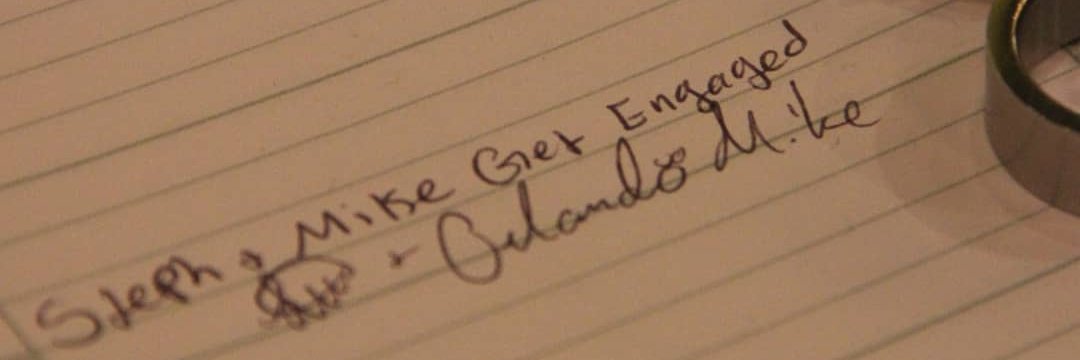 Steph + Mike Get Engaged
- Orlando Mike